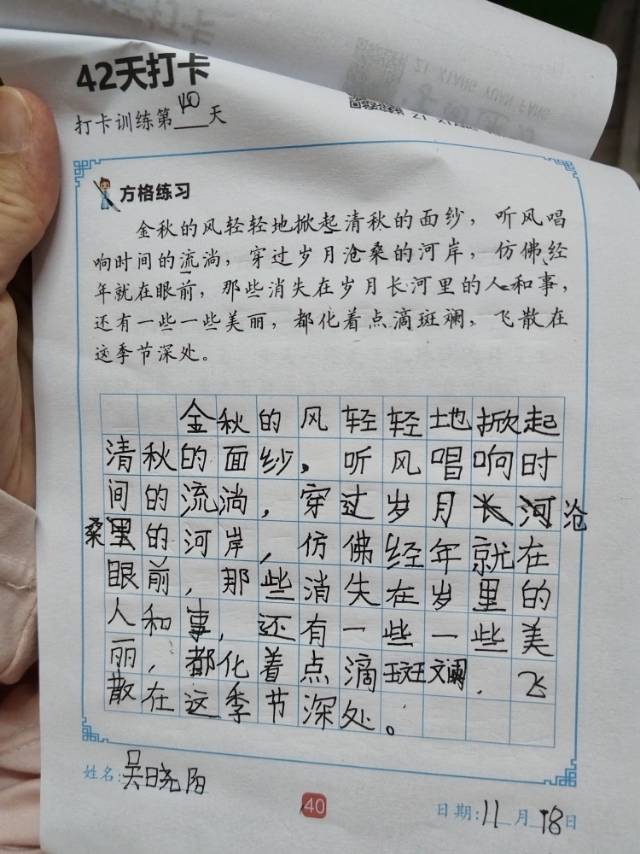 42天打卡
打卡训练第40天
方格练习
金秋的风轻轻地掀起清秋的面纱，听风唱
响时间的流淌，穿过岁月沧桑的河岸，仿佛经
年就在眼前，那些消失在岁月长河里的人和事，
还有一些一些美丽，都化着点滴斑斓，飞散在
这季节深处。
金秋的风轻轻地掀起
清秋的面纱，听风唱响时
间的流淌，穿过岁月长河沧
桑里的河岸，仿佛经年就在
眼前，那些消失在岁里的
人和事，还有一些一些美
丽，都化着点滴斑斓，飞
散在这季节深处。
姓名：吴晓阳
40
日期：11月18日